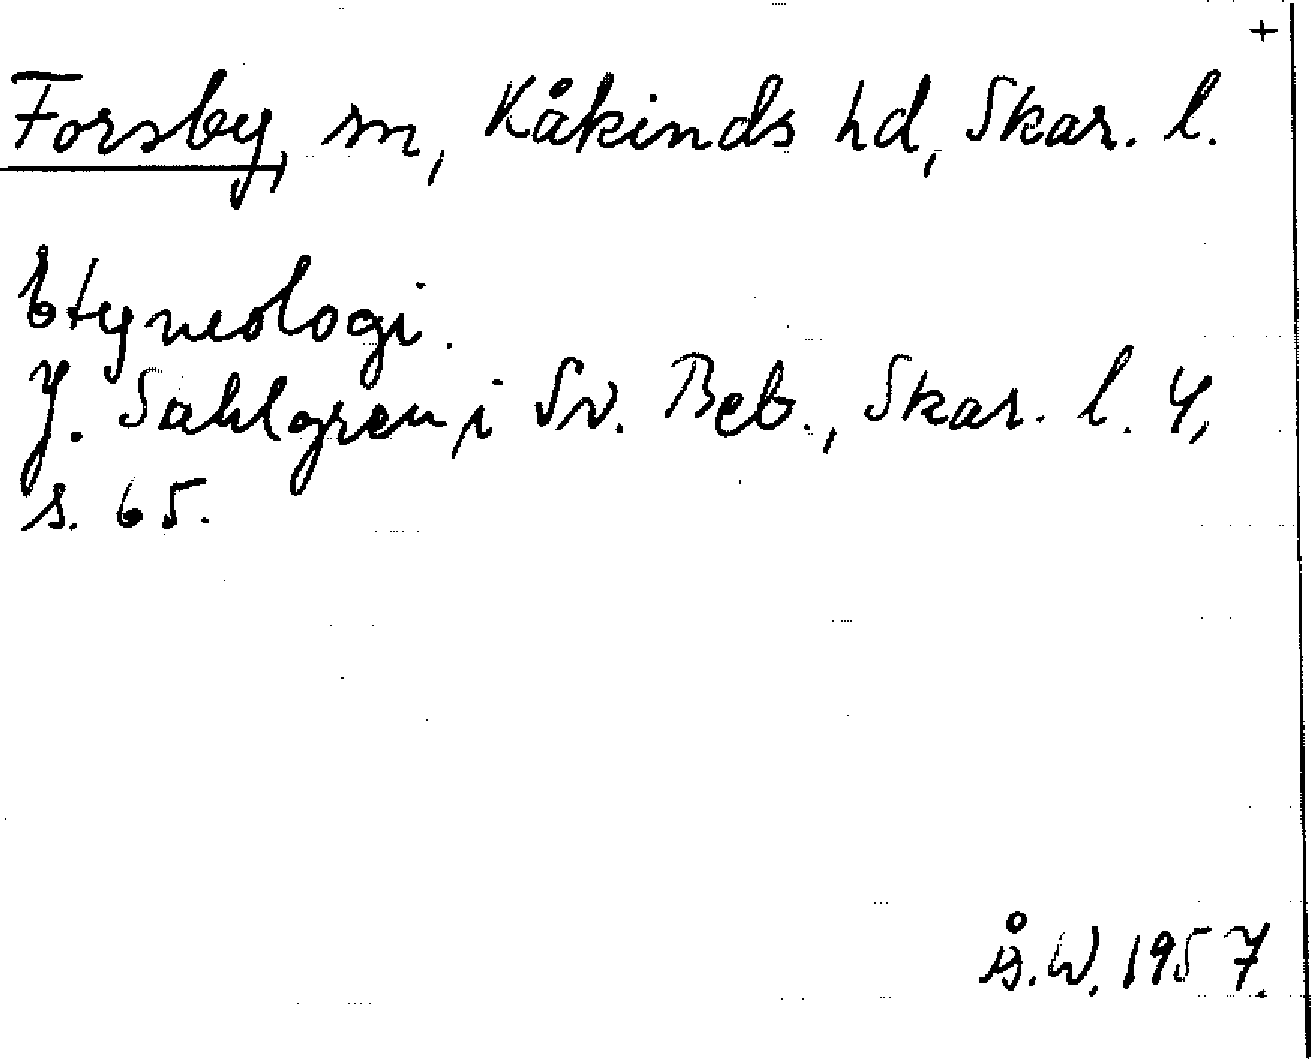 +
Forsby, sn, Kåkinds hd, Skar. l.
Etymologi.
J. Sahlgren, i Sv. Beb., Skar. l. 4,
s. 65.
Å.W. 1957.